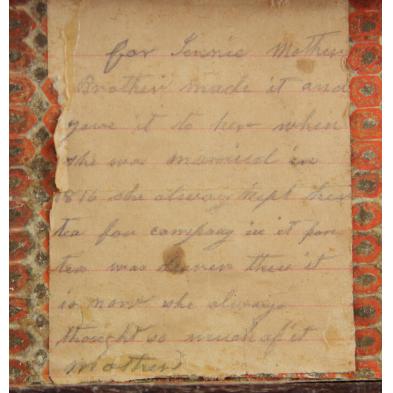 for Jennie Mother
Brother made it and
gave it to her when
she was married in
1816 she alway kept her
tea for company in it for
tea was dearer then it
is now she always
thought so much of it
Mother